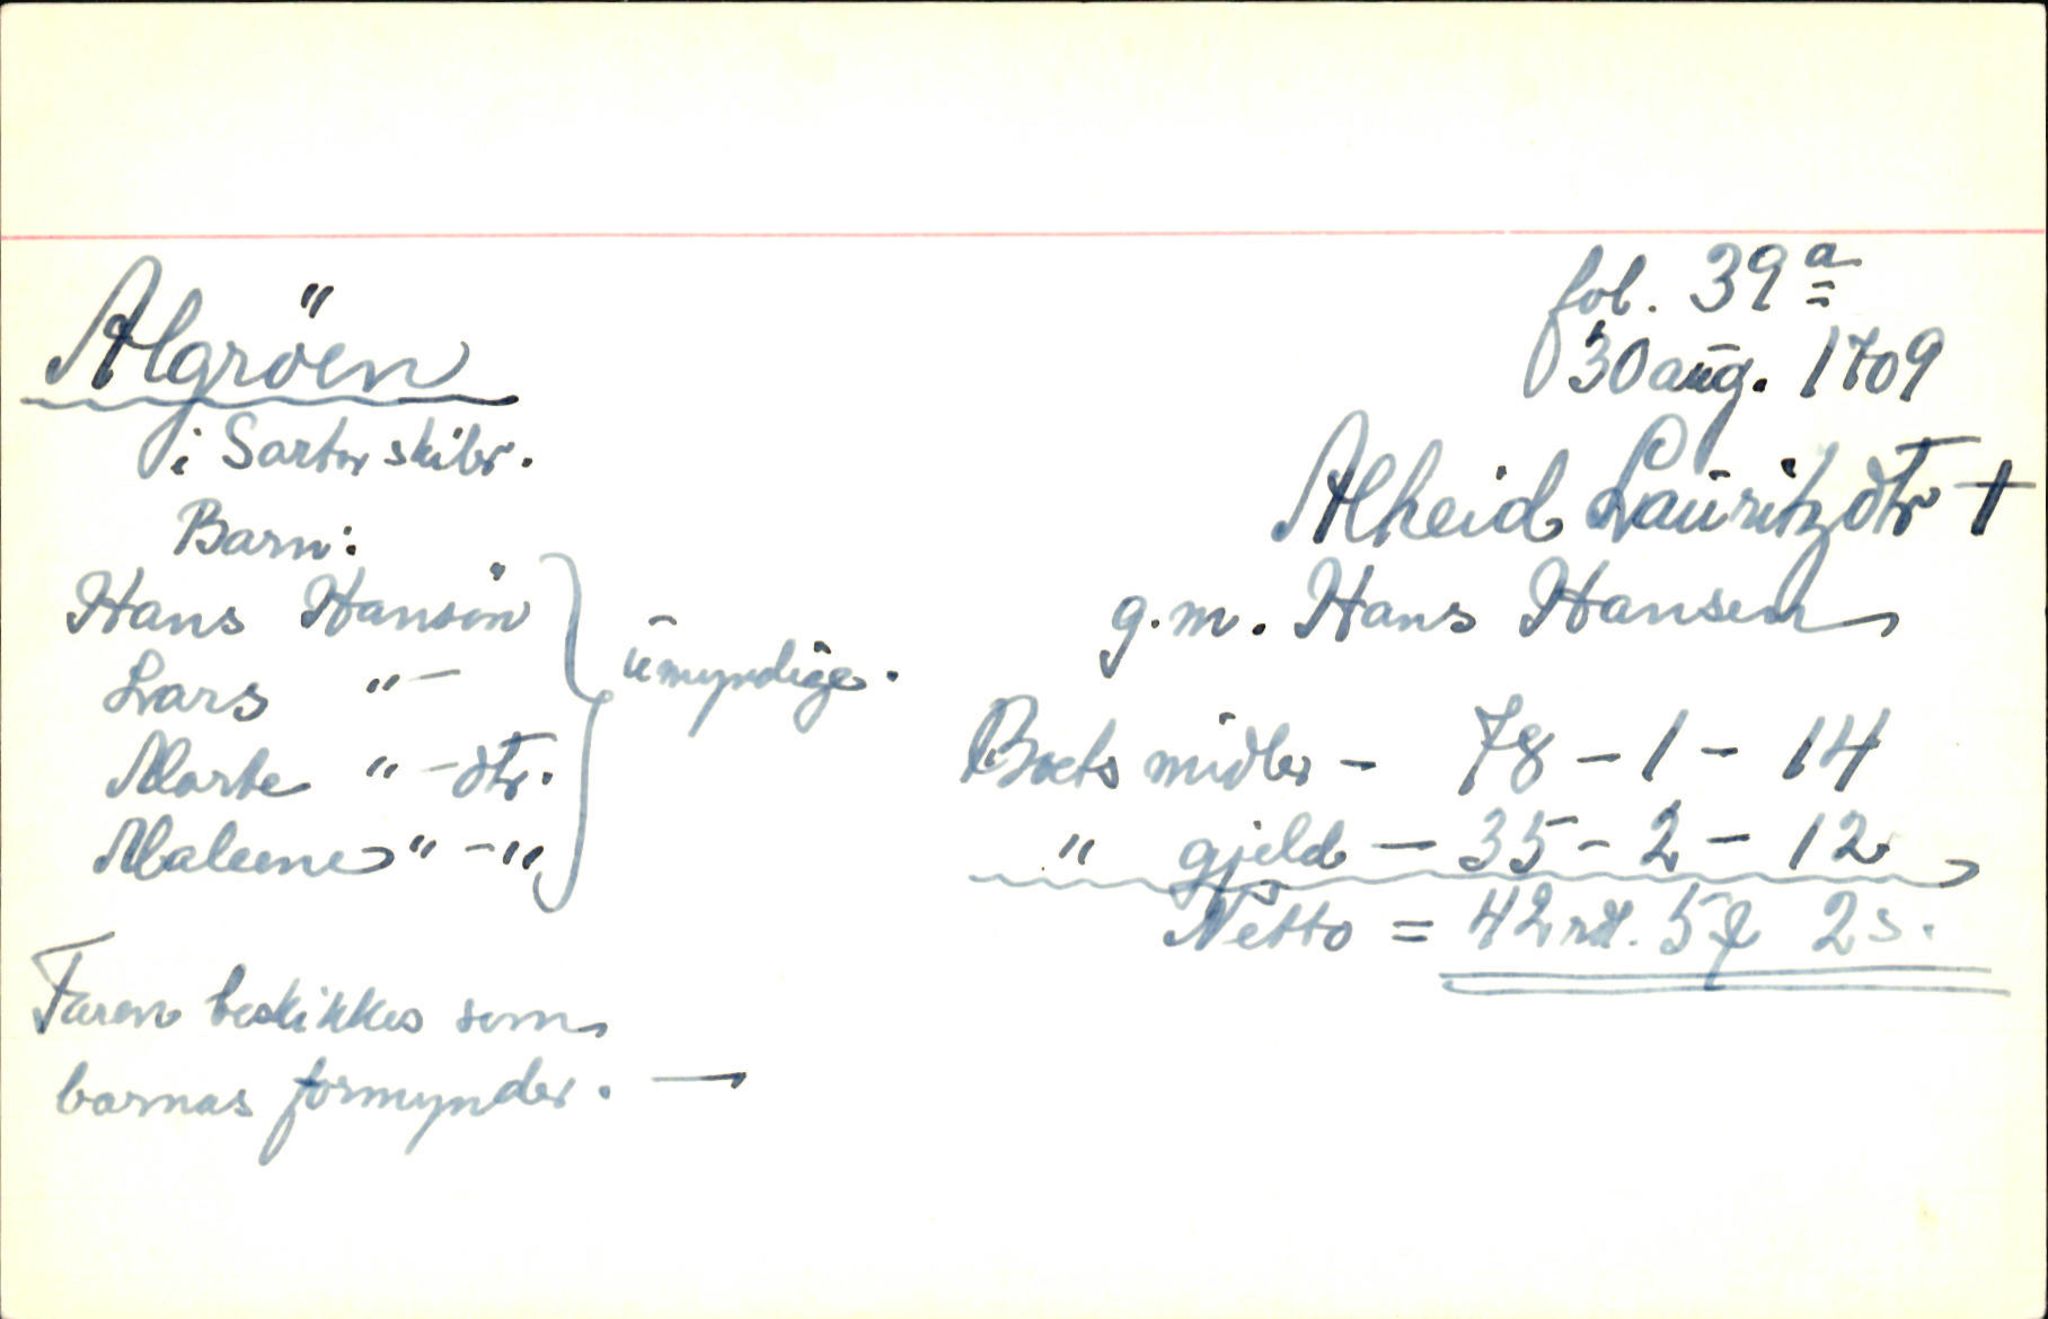 fol. 39a
30 aug. 1709
Algröen
i Sartor skibr.
Alheid Lauritzdtr +
g.m. Hans Hansen
Barn:
Hans Hansön
Lars " —
Marte " — dtr.
Maleene " — "
umyndige.
Boets midler - 78 - 1 - 14
" gjeld - 35 - 2 - 12
Netto = 42 rd. 5 2 s.
Faren beskikkes som
barnas formynder. —